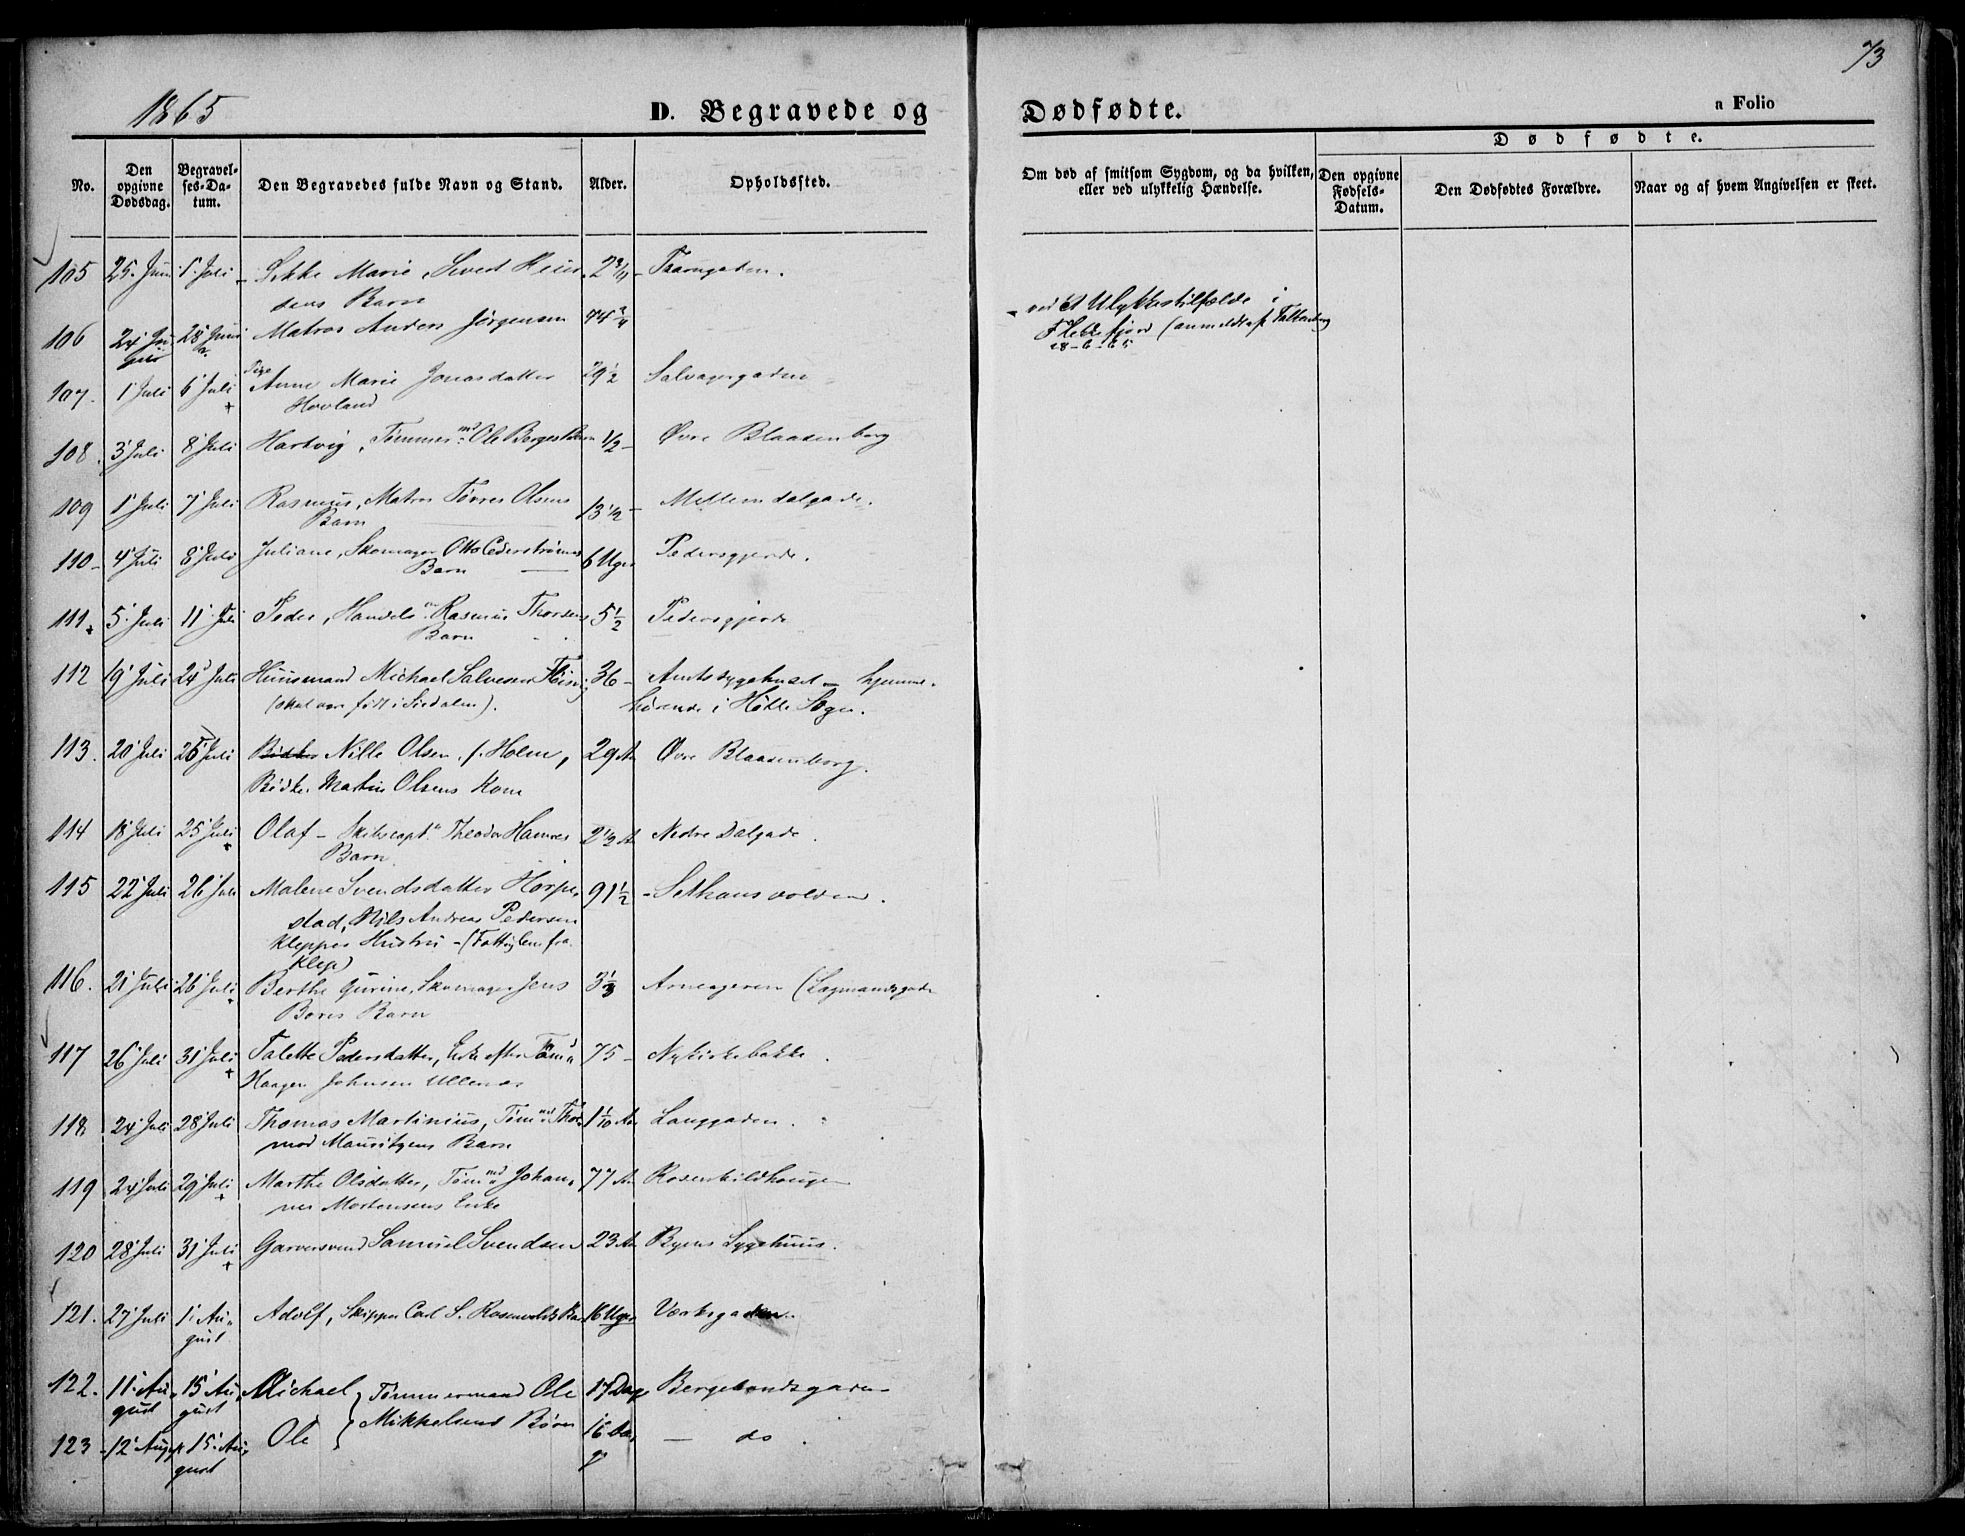 73
1865
D. Begravede og Dødfødte.
a Folio
No.
Den opgivne Dødsdag.
Begravelses-Datum.
Den Begravedes fulde Navn og Stand.
Alder.
Opholdssted.
Om død af smitsom Sygdom, og da hvilken,
eller ved ulykkelig Hændelse.
Dødfødte.
Den opgivne Fødsels-Datum.
Den Dødfødtes Forældre.
Naar og af hvem Angivelsen er skeet.
105 25 Juni 1 Juli Marie, Barn
106 24 Juni 28 Juni Matros Anders Jørgensen 44 ved et Ulykkestilfælde i
Flekkefjord (anmeldt af
28-6-65
107. 1 Juli 6 Juli Pige Anne Marie Jonasdatter 29½ Salvagergaden
Hovland
108. 3 Juli 8 Juli Hartvig, Tømmermd Ole Berges Barn ½ Øvre Blaasenborg
109 1 Juli 7 Juli Rasmus, Matros Tørres Olsens 13½ Mellemdalgade.
Barn
110 4 Juli 8 Juli Juliane, Skomager Otto Cederstrøms 6 Uger Pedersgjerde.
Barn
111. 5 Juli 11 Juli Peder, Handels Rasmus Thorsens 5½ Pedersgjerde
Barn
112 19 Juli 24 Juli Huusmand Michael Salvesen 36 Amtssygehuset hjemme-
(skal være født i Siredalen). hørende i Høle Sogn.
113. 20 Juli 26 Juli Nille Olsen f. Holm, 29 Aar Øvre Blaasenborg.
Bødker Martin Olsens Kone
114 18 Juli 25 Juli Olaf - Skibscapt. Theodor Hansens 2½ A Nedre Dalgade.
Barn.
115 22 Juli 26 Juli Malene Svendsdatter Hørpe- 91½ Sethausvolden.
stad, Nils Andreas Pedersen
Kleppes Hustru - (Fattiglem fra
Klep)
116. 21 Juli 26 Juli Berthe Gurine, Skomager Jens 3⅓ Arneageren (Lagmandsgade
Bores Barn
117 26 Juli 31 Juli Talette Pedersdatter, Enke efter Tøm 75 Nykirkebakke.
Haagen Johnsen Ullenæs
118 24 Juli 28 Juli Thomas Martinius, Tømmd Thor- 1 1/10 Aar Langgaden.
mod Mauritzens Barn
119 24 Juli 29 Juli Marthe Olsdatter, Tømmd Johan- 77 Aar Rosenkildhougen
nes Mortensens Enke
120 28 Juli 31 Juli Garversvend Samuel Svendsen 23 Aar Byens Sygehuus.
121. 27 Juli 1 August Adolf, Skipper Carl S. Rosenvolds Barn 16 Uger Værksgaden.
122. 11 August 15 August Michael Tømmermand Ole 17 Dage Bergelandsgaden
123 12 August 15 August Ole Mikkelsens Børn 16 Dage do